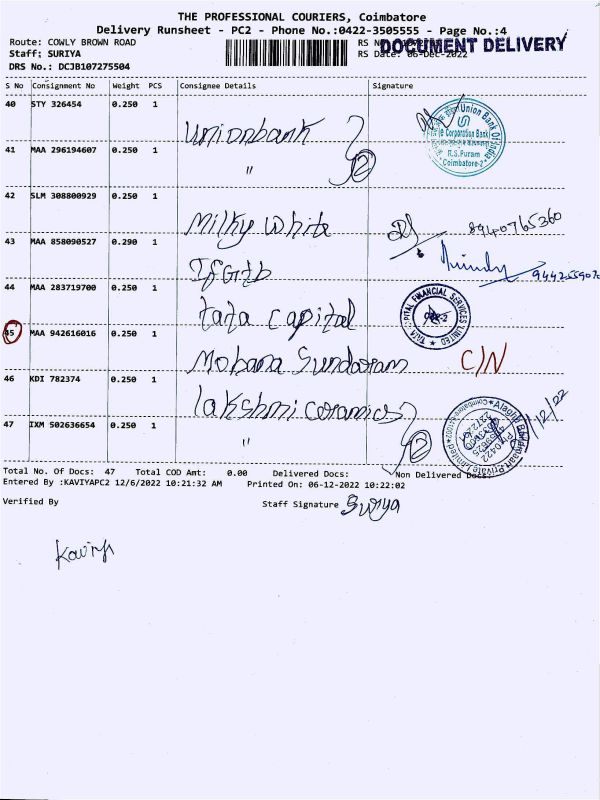 THE PROFESSIONAL COURIERS, Coimbatore
Delivery Runsheet - PC2 - Phone No.:0422-3505555 - Page No.:4
Route: COWLY BROWN ROAD
RS
DOCUMENT DELIVERY
Staff: SURIYA
RS Date: 06-Dec-2022
DRS No.: DCJB107275504
S No Consignment No Weight PCS Consignee Details Signature
40 STY 326454 0.250 1 Unionbank
Union Bank Of India
Corporation Bank
R.S.Puram
Coimbatore-2
41 MAA 296194607 0.250 1 " 2
42 SLM 308800929 0.250 1 Milky White 8940765360
43 MAA 858090527 0.290 1
44 MAA 283719700 0.250 1 tata capital
TATA CAPITAL FINANCIAL SERVICES LIMITED
45 MAA 942616016 0.250 1 Mohana Sundaram C/N
46 KDI 782374 0.250 1 lakshmi ceramics
47 IXM 502636654 0.250 1 " 2
Private Limited
Total No. Of Docs: 47 Total COD Amt: 0.00 Delivered Docs: Non Delivered Docs:
Entered By :KAVIYAPC2 12/6/2022 10:21:32 AM Printed On: 06-12-2022 10:22:02
Verified By Staff Signature Suriya
Kaviya